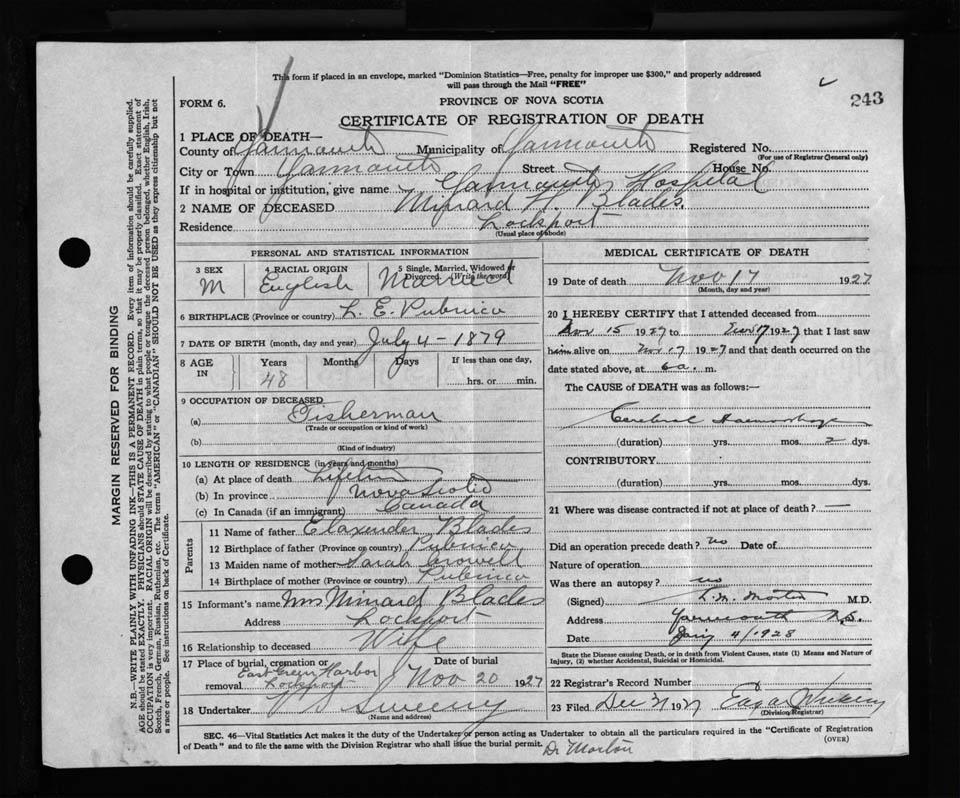 This form if placed in an envelope, marked "Dominion Statistics—Free, penalty for improper use $300," and properly addressed
will pass through the Mail "FREE"
243
FORM 6.
PROVINCE OF NOVA SCOTIA
CERTIFICATE OF REGISTRATION OF DEATH
1 PLACE OF DEATH—
County of Yarmouth Municipality of Yarmouth Registered No.
(For use of Registrar General only)
City or Town Yarmouth Street House No.
If in hospital or institution, give name Yarmouth Hospital
2 NAME OF DECEASED Minard H. Blades.
Residence Lockport
(Usual place of abode)
PERSONAL AND STATISTICAL INFORMATION
3 SEX 4 RACIAL ORIGIN 5 Single, Married, Widowed or Divorced. (Write the word)
M English Married
6 BIRTHPLACE (Province or country) L. E. Pubnico
7 DATE OF BIRTH (month, day and year) July 4 - 1879
8 AGE IN Years Months Days If less than one day,
48 hrs. or min.
9 OCCUPATION OF DECEASED
(a) Fisherman
(Trade or occupation or kind of work)
(b)
(Kind of industry)
10 LENGTH OF RESIDENCE (in years and months)
(a) At place of death
(b) In province Nova Scotia
(c) In Canada (if an immigrant) Canada
Parents
11 Name of father Elaxender Blades
12 Birthplace of father (Province or country) Pubnico
13 Maiden name of mother Sarah Crowell
14 Birthplace of mother (Province or country) Pubnico
15 Informant's name Mrs Minard Blades
Address Lockport
16 Relationship to deceased Wife
17 Place of burial, cremation or removal East Green Harbor Lockport
Date of burial Nov 20 1927
18 Undertaker Sweeny
(Name and address)
MEDICAL CERTIFICATE OF DEATH
19 Date of death Nov 17 1927
(Month, day and year)
20 I HEREBY CERTIFY that I attended deceased from
Nov 15 1927 to Nov 17 1927 that I last saw
him alive on Nov 17 1927 and that death occurred on the
date stated above, at 6 a. m.
The CAUSE of DEATH was as follows:—
Cerebral Haemorrhage
(duration) yrs. mos. 2 dys.
CONTRIBUTORY.
(duration) yrs. mos. dys.
21 Where was disease contracted if not at place of death? —
Did an operation precede death? no Date of
Nature of operation
Was there an autopsy? no
(Signed) L. M. Morton M.D.
Address Yarmouth N.S.
Date 4/1928
State the Disease causing Death, or in death from Violent Causes, state (1) Means and Nature of
Injury, (2) whether Accidental, Suicidal or Homicidal.
22 Registrar's Record Number
23 Filed Dec 31 1927
(Division Registrar)
SEC. 46—Vital Statistics Act makes it the duty of the Undertaker or person acting as Undertaker to obtain all the particulars required in the "Certificate of Registration
of Death" and to file the same with the Division Registrar who shall issue the burial permit.
(OVER)
Dr Morton
MARGIN RESERVED FOR BINDING
N.B.—WRITE PLAINLY WITH UNFADING INK—THIS IS A PERMANENT RECORD. Every item of information should be carefully supplied.
AGE should be stated EXACTLY. PHYSICIANS should STATE CAUSE OF DEATH in plain terms, so that it may be properly classified. Exact statement of
OCCUPATION is very important. RACIAL ORIGIN will be described by stating to what people or tongue the deceased person belonged, whether English, Irish,
Scotch, French, German, Russian, Ruthenian, etc. The terms "AMERICAN" or "CANADIAN" SHOULD NOT BE USED as they express citizenship but not
a race or people. See instructions on back of Certificate.